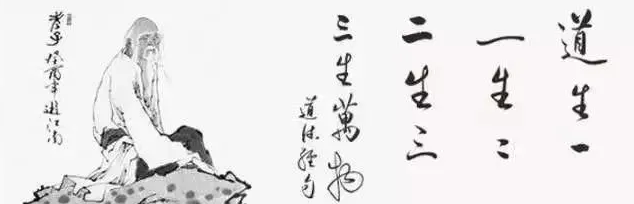 道生一
一生二
二生三
三生萬物
道德經句
老子 癸酉年